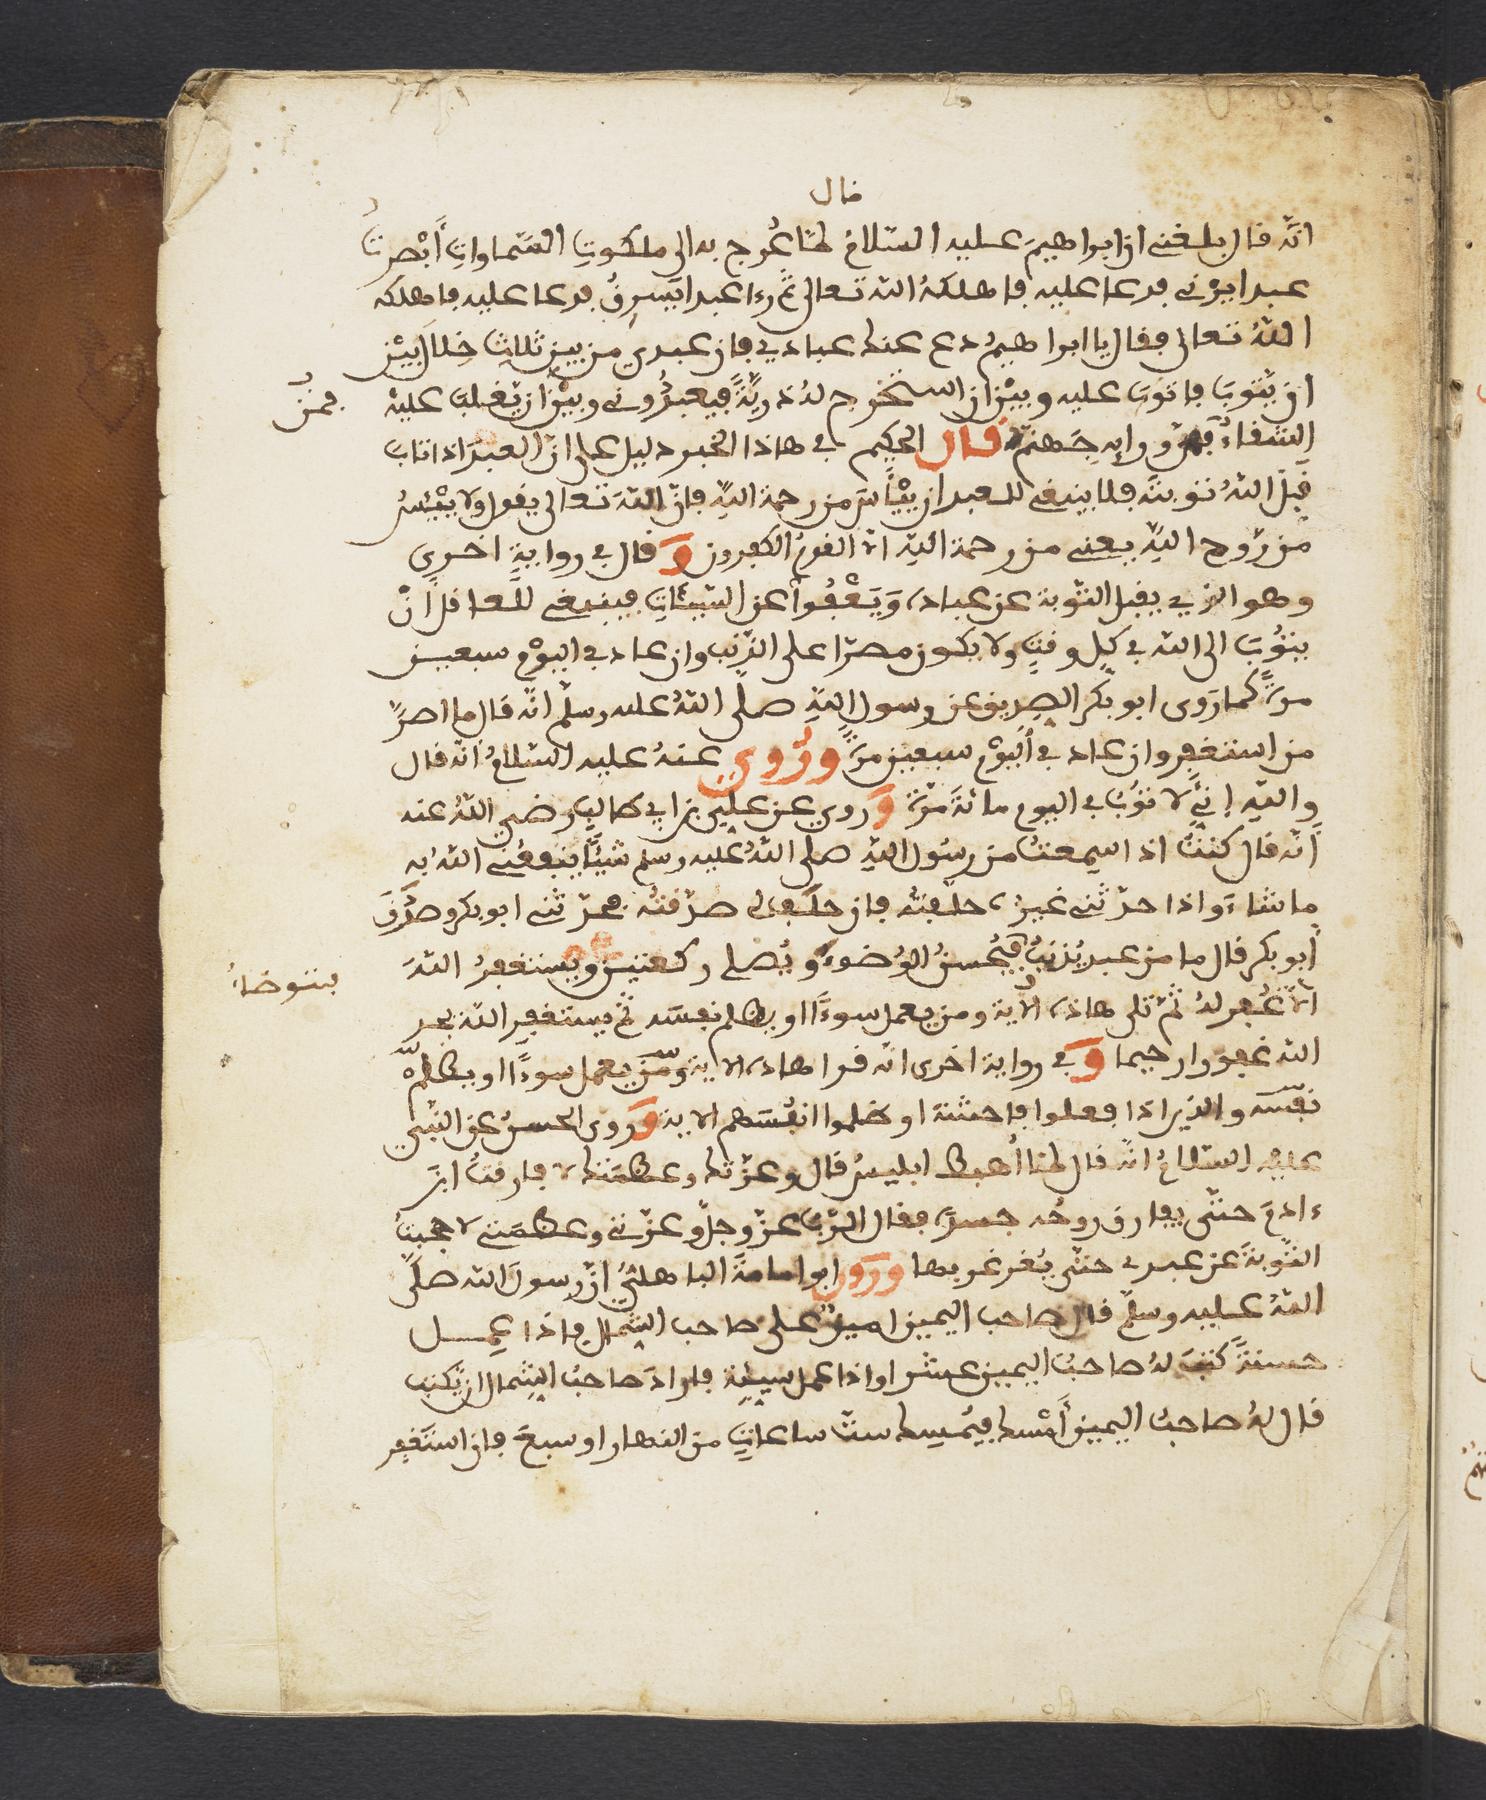 قال
انّه قال بلغني ان ابراهيمَ عليه السّلامُ لمّا عُرج به الى ملكوتِ السّماواتِ أبْصرَ
عبدا يزني فدعا عليه فاهلكهُ اللّه تعالى ثمّ رءا عبدا يَسرِقُ فدعا عليه فاهلكه
اللّهُ تعالى فقال يا ابراهيمُ دع عنك عبادي فان عبدي من بين ثلاثِ خِلالٍ بيْن
ان يّتوبَ فاتوبَ عليه وبيْن ان استخرج لهُ ذريّةً فيعبدُوني وبيْن ان يّغلبَ عليْهِ
فمِن
الشقاءُ وراءِه جهنّم قال الحكيم في هاذا الخبر دليل على انّ العبدَ اذا تاب
قَبِلَ اللّهُ توبتَه فلا ينبغي للعبد ان ييْأسَ من رحمة اللّهِ فانّ اللّهَ تعالى يقول ولا ييْئسُ
من رّوح اللّهِ يعني من رحمة اللّهِ الا القومُ الكفرون وَ قال في روايةٍ اخرى
وهو الذي يقبل التّوبة عن عباده وَيَعْفُوا عن السّيّئاتِ فينبغي للعاقل أنْ
يتوُبَ الى اللّه في كلِ وقتٍ ولا يكون مصرّا على الذّنب وان عاد في اليوْم سبعيـن
مرةً كما رَوى ابو بكر الصديق عن رسول اللّهِ صلّى اللّهُ عليه وسلّم انّه قال ما اصرَّ
من استغفر وان عاد في اليوْم سبعين مرّةً ورُوي عنهُ عليه السّلامُ انّه قال
واللّهِ إنّي لاتوُبُ في اليوم مائةَ مرّةٍ وَروي عن علِي بن ابي طالبٍ رضي اللّهُ عنه
أنّه قال كنتُ اذا سمِعتُ من رسُول اللّهِ صلى اللّهُ عليه وسلم شيئًا ينفعُني اللّه به
ما شاءَ واذا حدّثني غيرُه حلّفتُه فان حلَف لي صدّقتُه فحدّثني ابو بكر وصدَق
أبو بكر قال ما من عبد يُذنبُ فيُحسنُ الوُضوءَ ويُصلي ركعتين ويستغفرُ اللّهَ
يتوضاُ
الاّ غُفِر لهُ ثمّ تلى هاذه الاية ومن يعمل سوءًا او يظلم نفسَه ثمّ يستغفرِ اللّه يجد
اللّه غفورا رحيما وَ في رواية اخرى انّه قرا هاذه الاية ومَن يعمل سوءًا او يظلم
نفسَه والذين اذا فعلوا فاحشة او ظلموا انفسَهم الاية وَروى الحسنُ عن النّبيّ
عليْهِ السّلامُ انّه قال لمّا اُهبط ابليسُ قال وعزّتك وعظمَتك لا فارقتُ ابنَ
ءادمَ حتّى يفارق روحُه جسدَه فقال الرّبُّ عزّ وجلّ وعزّتي وعظمَتي لا حجبتُ
التّوبةَ عن عبدي حتّى يُغرغر بها وروى ابو امامةَ الباهليّ انّ رسولَ اللّه صلّى
اللّهُ عليه وسلّم قال صاحب اليمين امينٌ على صاحب الشمال فاذا عمِـل
حسنةً كَتبَ لهُ صاحبُ اليمين عشرا واذا عمل سيئة فارادَ صاحبُ الشِمال ان يّكتب
قال لهُ صاحبُ اليمين أَمْسِك فيُمسِك ستّ ساعاتٍ من النهار او سبعَ فان استَغفر